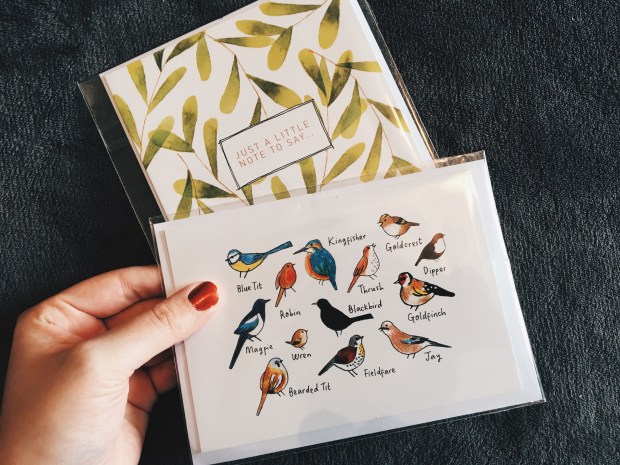 JUST A LITTLE
NOTE TO SAY...
Kingfisher
Goldcrest
Blue Tit
Thrush
Dipper
Robin
Blackbird
Goldfinch
Magpie
Wren
Jay
Fieldfare
Bearded Tit